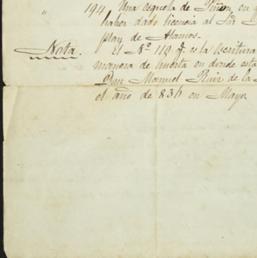 " 194, Una esquela de
haber dado licencia al Sor
de Alamos.
Nota. El Nº 119 q. es la escritura
de muerta en donde esta
Don Manuel Ruiz de la
el año de 836 en Mayo.